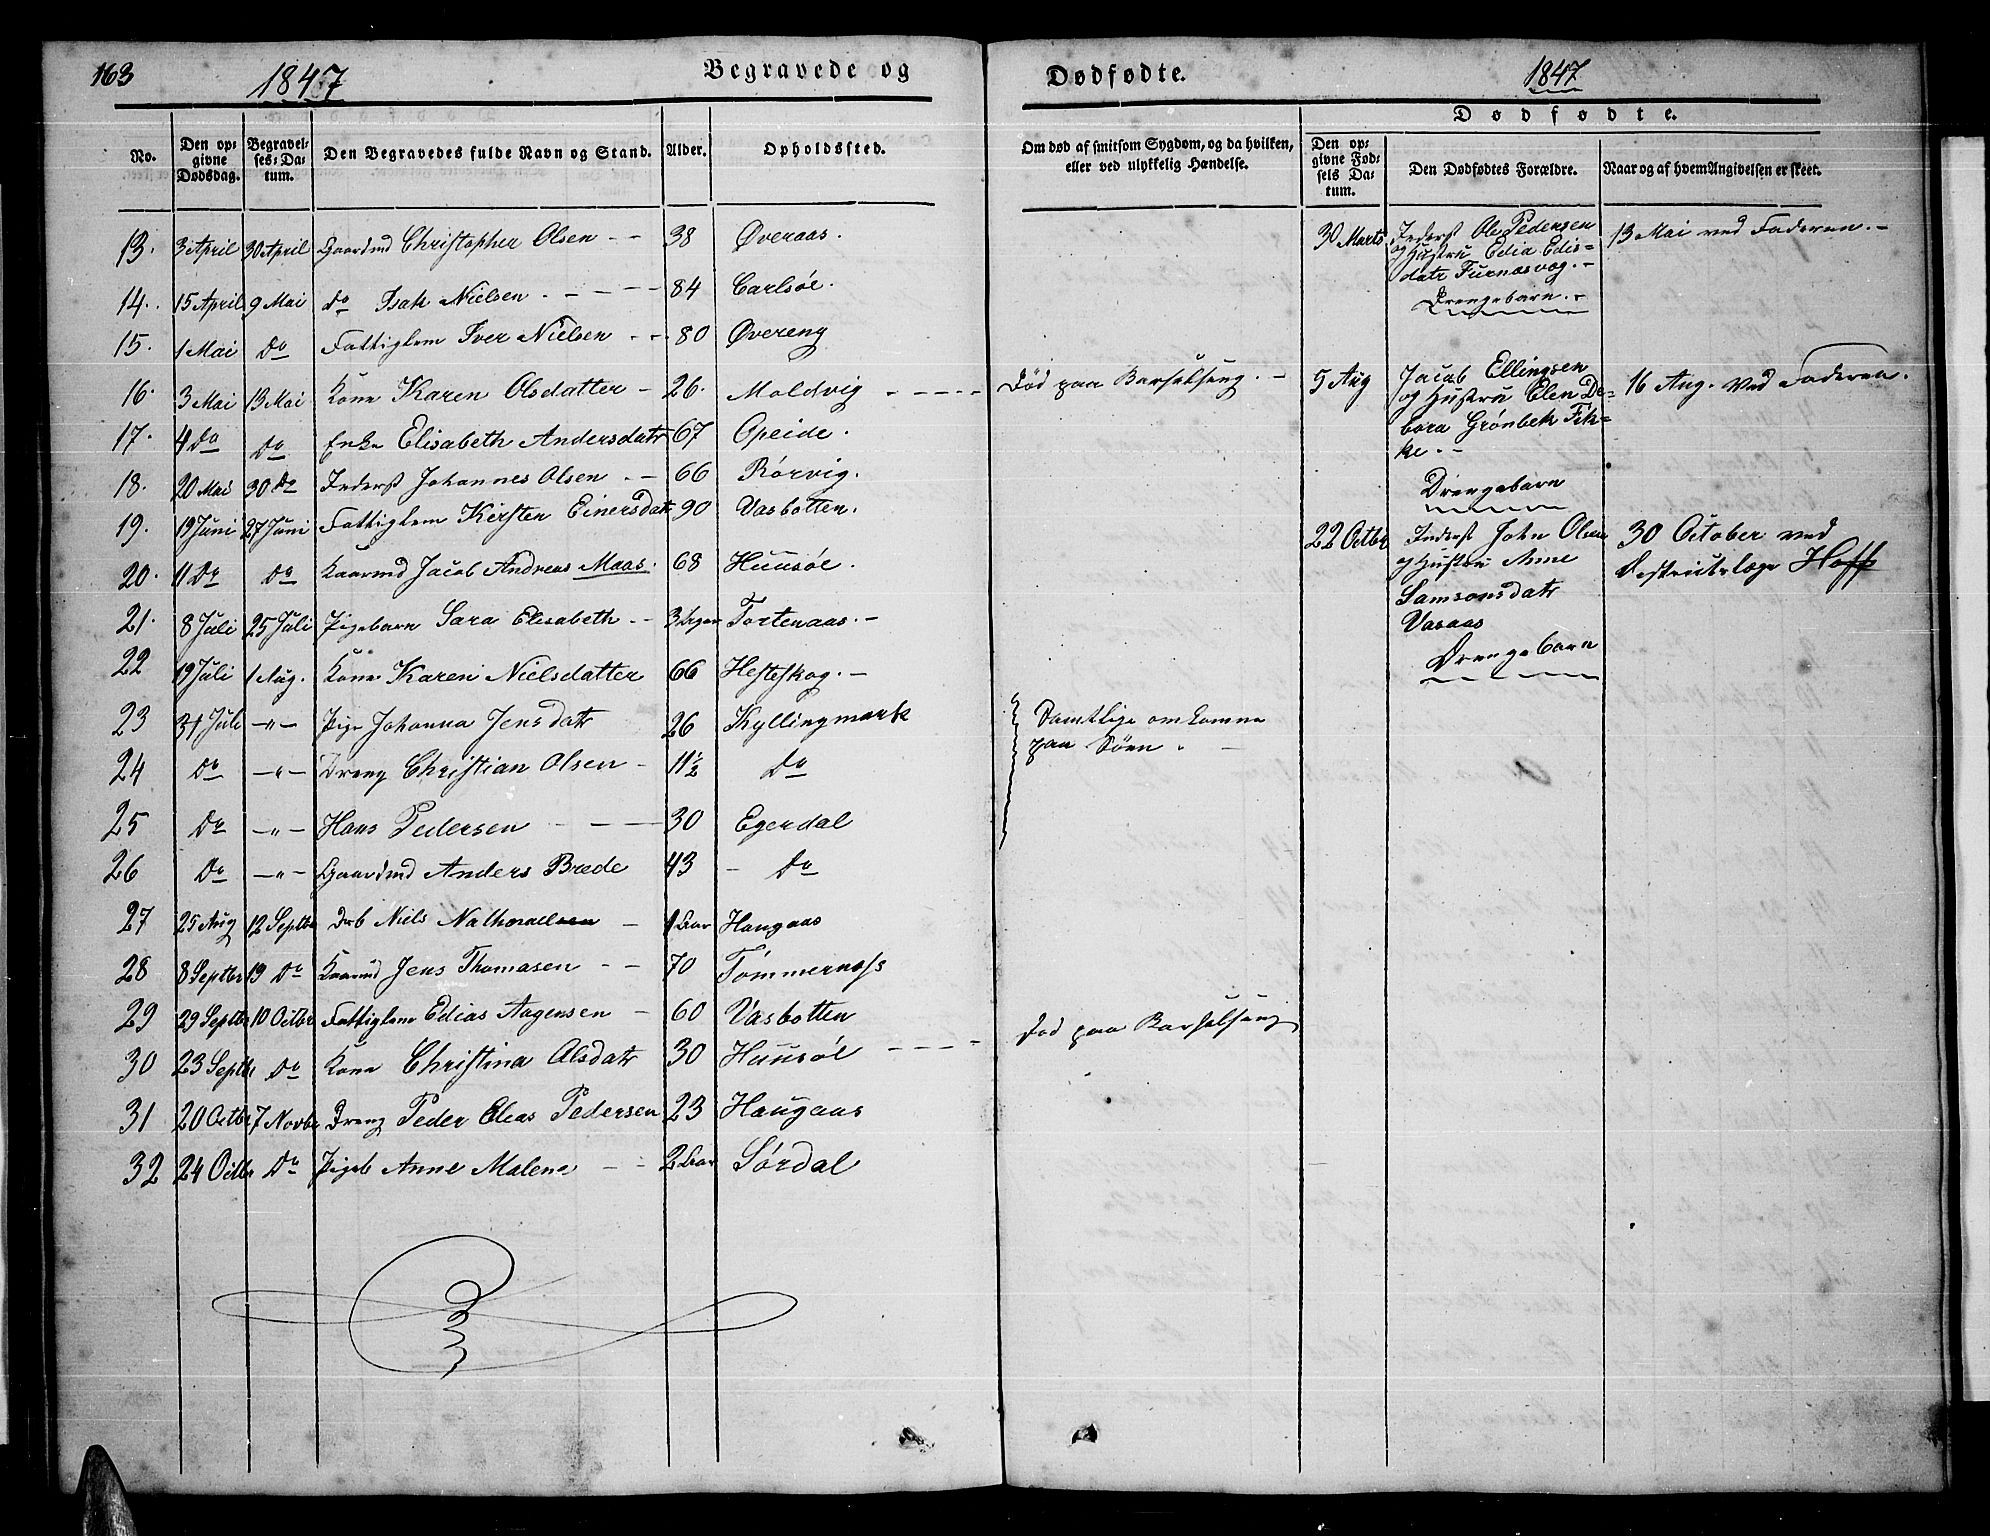 163
1847
Begravede og
Dødfødte.
1847
Dødfødte.
No.
Den op-
givne
Dødsdag.
Begravel-
ses-Da-
tum.
Den Begravedes fulde Navn og Stand.
Alder.
Opholdssted.
Om død af smitsom Sygdom, og da hvilken,
eller ved ulykkelig Hændelse.
Den op-
givne Fød-
sels Da-
tum.
Den Dødfødtes Forældre.
Naar og af hvem Angivelsen er skeet.
13. 3 April 30 April Gaardmd Christopher Olsen - - 38 Øveraas.
14. 15 April 9 Mai Do Isak Nielsen - - - 84 Carlsöe.
15. 1 Mai Do Fattiglem Iver Nielsen - - 80 Øvereng
16. 3 Mai 13 Mai Kone Karen Olsdatter - 26. Moldvig - - - - Död paa Barselseng. -
17. 4 Do Do Enke Elisabeth Andersdatr 67 Opeide.
18. 20 Mai 30 Do Inderst Johannes Olsen - - 66 Rörvig.
19. 19 Juni 27 Juni Fattiglem Kirsten Einersdatr 90 Vasbotten.
20. 11 Do Do Kaarmd Jacob Andreas Maas. 68 Huusöe.
21. 8 Juli 25 Juli Pigebarn Sara Elisabeth - - 3 Dger Tortenaas. -
22 19 Juli 1 Aug. Kone Karen Nielsdatter 66 Hesteskog. -
23 31 Juli -"- Pige Johanna Jensdatr 26 Kyllingmark
Samtlige omkomne
paa Söen. -
24 Do -"- Dreng Christian Olsen - 11½ Do
25 Do -"- Hans Pedersen - - - 30 Egerdal
26 Do -"- Gaardmd Anders Brede 43 - Do
27 25 Aug 12 Septbr Drb Niels Nathanaelsen - 1 Aar Haugaas
28 8 Septbr 19 Do Kaarmd Jens Thomasen - - 70 Tömmernæss
29 29 Septbr 10 Octbr Fattiglem Edias Aagensen - 60 Vasbotten
30 23 Septbr Do Kone Christina Olsdatr 30 Huusöe - - - - Död paa Barselseng
31 20 Octbr 7 Novbr Dreng Peder Elias Pedersen 23 Haugaas
32 24 Octbr Do Pigeb Anne Malene - - 2 Aar Sørdal
30 Marts
Inderst Ole Pedersen
og Hustru Edia Edis-
datr Furnæsvog. -
Drengebarn. -
13 Mai ved Faderen. -
5 Aug
Jacob Ellingsen
og Hustru Elen De-
bora Grønbek Fik-
ke. - -
Drengebarn
16 Aug. ved Faderen.
22 Octbr
Inderst John Olsen
og Hustru Anne
Samsonsdatr
Vasaas
Drengebarn
30 October ved
Districtslæge Hoff